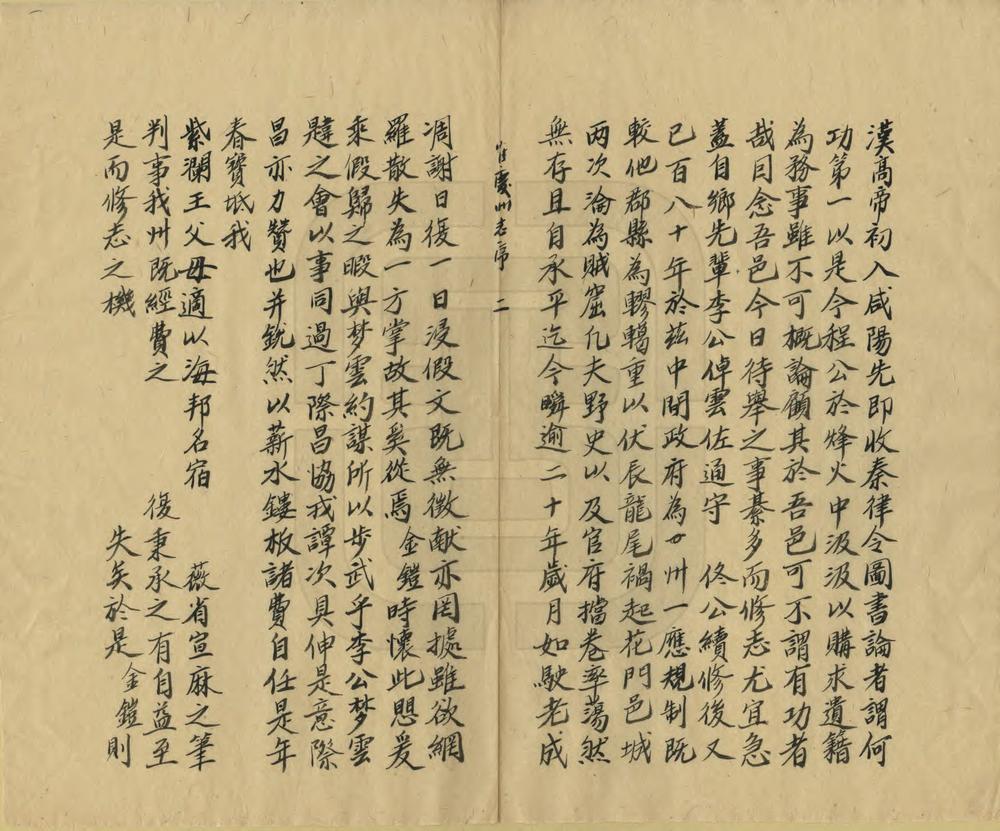 漢高帝初入咸陽先即收秦律令圖書論者謂何
功第一以是今程公於烽火中汲汲以購求遺籍
為務事雖不可概論顧其於吾邑可不謂有功者
哉囙念吾邑今日待舉之事綦多而修志尤宜急
蓋自鄉先輩李公倬雲佐通守 佟公續修後又
已百八十年於茲中間政府為廿州一應規制既
較他郡縣為轇轕重以伏辰龍尾禍起花門邑城
两次淪為賊窟凢夫野史以及官府擋卷率蕩然
無存且自承平迄今瞬逾二十年歲月如駛老成
慶州志序 二
凋謝日復一日浸假文既無徵献亦罔據雖欲網
羅散失為一方掌故其奚從焉金鎧時懷此愳爰
乘假歸之暇與梦雲約謀所以步武乎李公梦雲
韙之會以事同過丁際昌協戎譚次具伸是意際
昌亦力贊也并銳然以薪水鏤板諸費自任是年
春寶坻我
紫瀾王父母適以海邦名宿 薇省宣麻之筆
判事我州既經費之 復秉承之有自益至
是而修志之機 失矣於是金鎧則